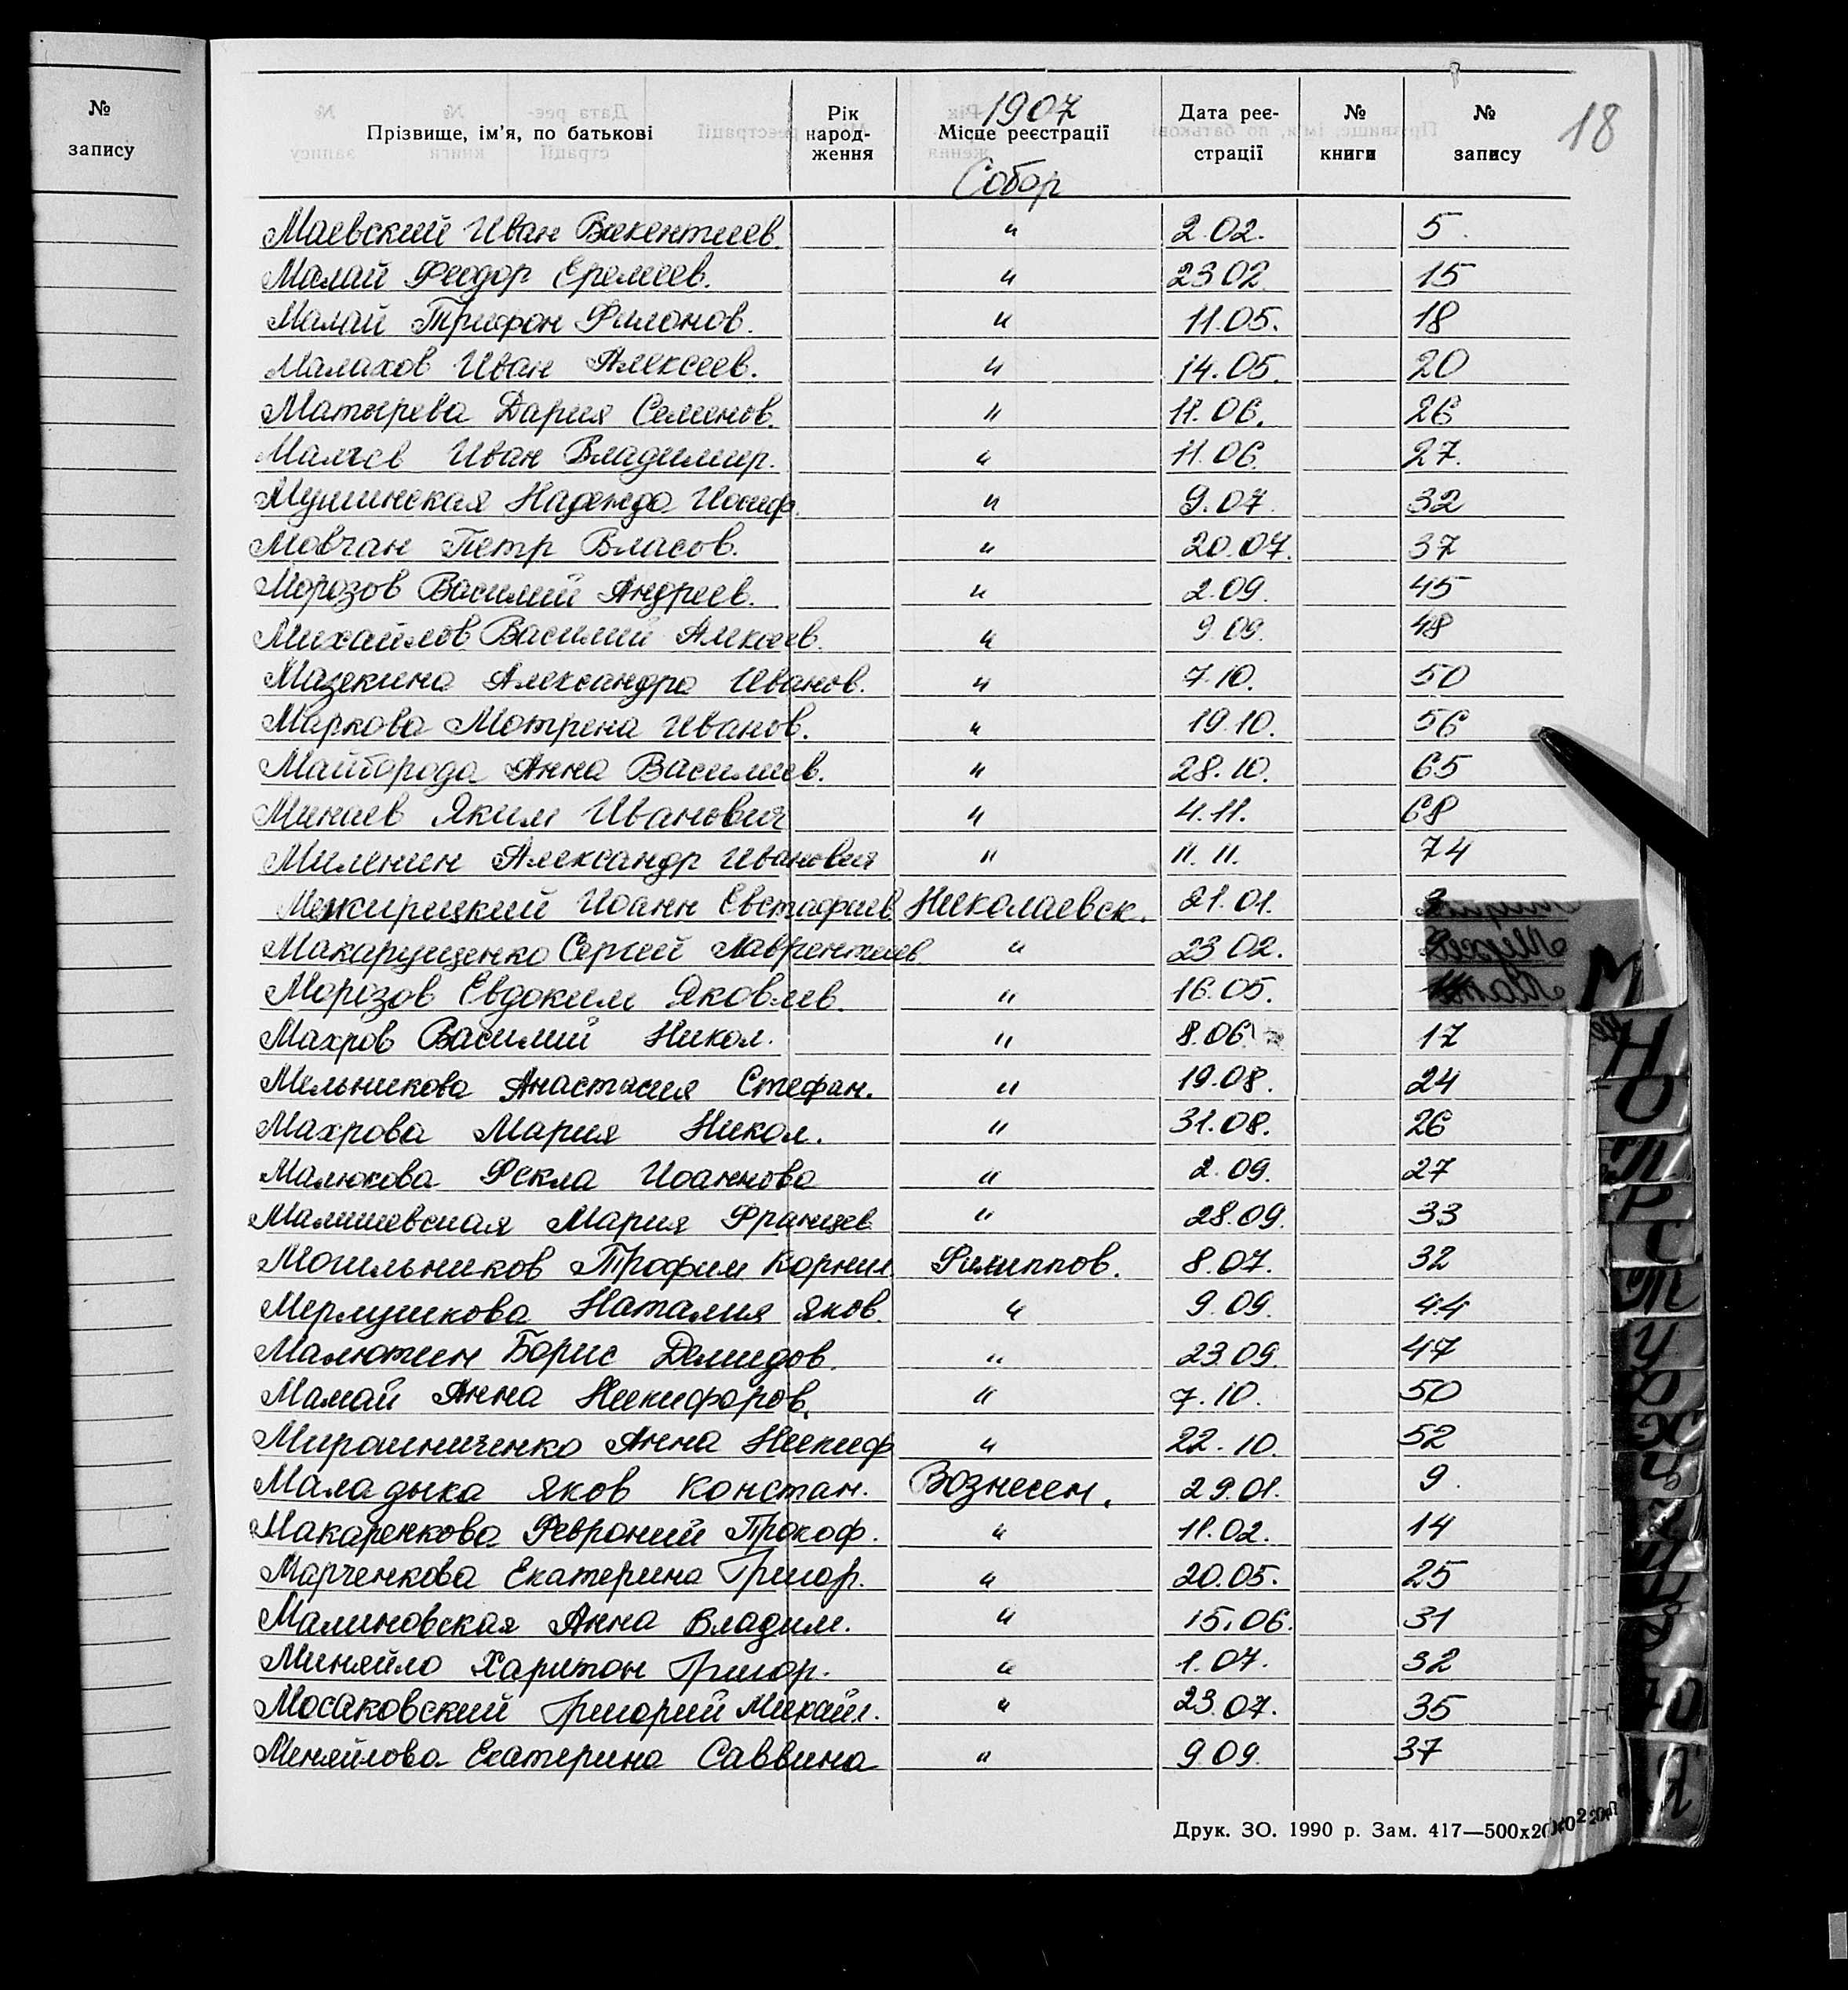 №
запису
Прізвище, ім'я, по батькові
Рік народ-ження
1907
Місце реєстрації
Собор
Дата реє-страції
№ книги
№ запису
18
Маевский Иван Викентиев. " 2.02. 5.
Малай Феодор Еремеев. " 23 02. 15
Малай Трифон Филонов. " 11.05. 18
Малахов Иван Алексеев. " 14.05. 20
Матырева Дария Семенов. " 11.06. 26
Малчев Иван Владимир. " 11.06. 27.
Мушинская Надежда Иосиф. " 9.07. 32
Мовчан Петр Власов. " 20.07. 37
Морозов Василий Андреев. " 2.09. 45
Михайлов Василий Алексеев. " 9.09. 48
Мазекина Александра Иванов. " 7.10. 50
Маркова Мотрена Иванов. " 19.10. 56
Майборода Анна Василиев. " 28.10. 65
Минаев Яким Иванович " 4.11. 68
Миленин Александр Иванович " 11.11. 74
Межирицкий Иоанн Евстафиев Николаевск. 21.01. 3
Макарущенко Сергей Лаврентиев " 23 02.
Морозов Евдоким Яковлев. " 16.05.
Махров Василий Никол. " 8.06. 17
Мельникова Анастасия Стефан. " 19.08. 24
Махрова Мария Никол. " 31.08. 26
Малюкова Фекла Иоаннова " 2.09. 27
Малишевская Мария Францев " 28.09. 33
Могильников Трофим Корнил. Филиппов. 8.07. 32
Мерлушкова Наталия Яков. " 9.09. 44
Малютин Борис Демидов. " 23.09. 47
Мамай Анна Никифоров. " 7.10. 50
Мирошниченко Анна Никиф. " 22.10. 52
Маладыка Яков Констан. Вознесен. 29.01. 9.
Макаренкова Февроний Прокоф. " 11.02. 14
Марченкова Екатерина Григор. " 20.05. 25
Малиновская Анна Владим. " 15.06. 31
Миняйло Харитон Григор. " 1.07. 32
Мосаковский Григорий Михайл. " 23.07. 35
Меняйлова Екатерина Саввина " 9.09. 37
М
Н
О
П
Р
С
Т
У
Ф
Х
Ц
Ч
Ю
Я
Друк. ЗО. 1990 р. Зам. 417—500х20